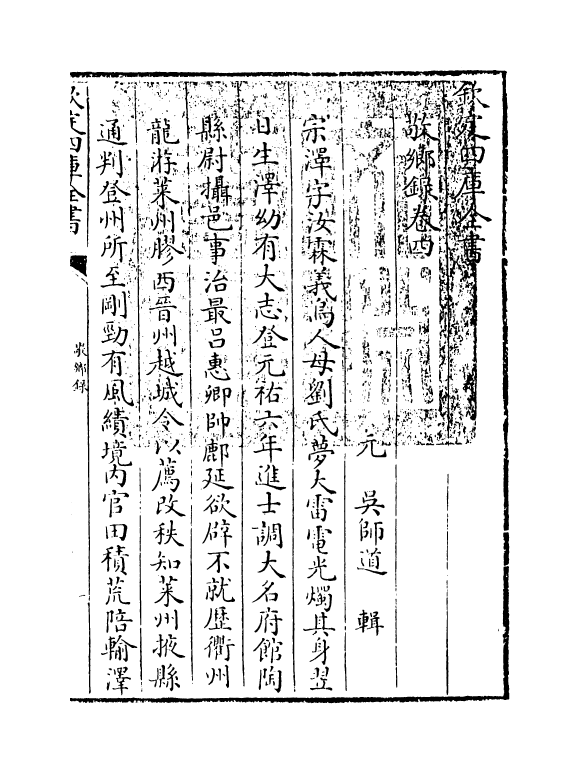 欽定四庫全書
敬鄉録卷四
元　吳師道　輯
宗澤字汝霖義烏人母劉氏夢大雷電光燭其身翌
日生澤幼有大志登元祐六年進士調大名府館陶
縣尉攝邑事治最吕惠卿帥鄜延欲辟不就歴衢州
龍游萊州膠西晉州越城令以薦改秩知萊州掖縣
通判登州所至剛勁有風績境内官田積荒陪輸澤
欽定四庫全書
敬鄉録
一